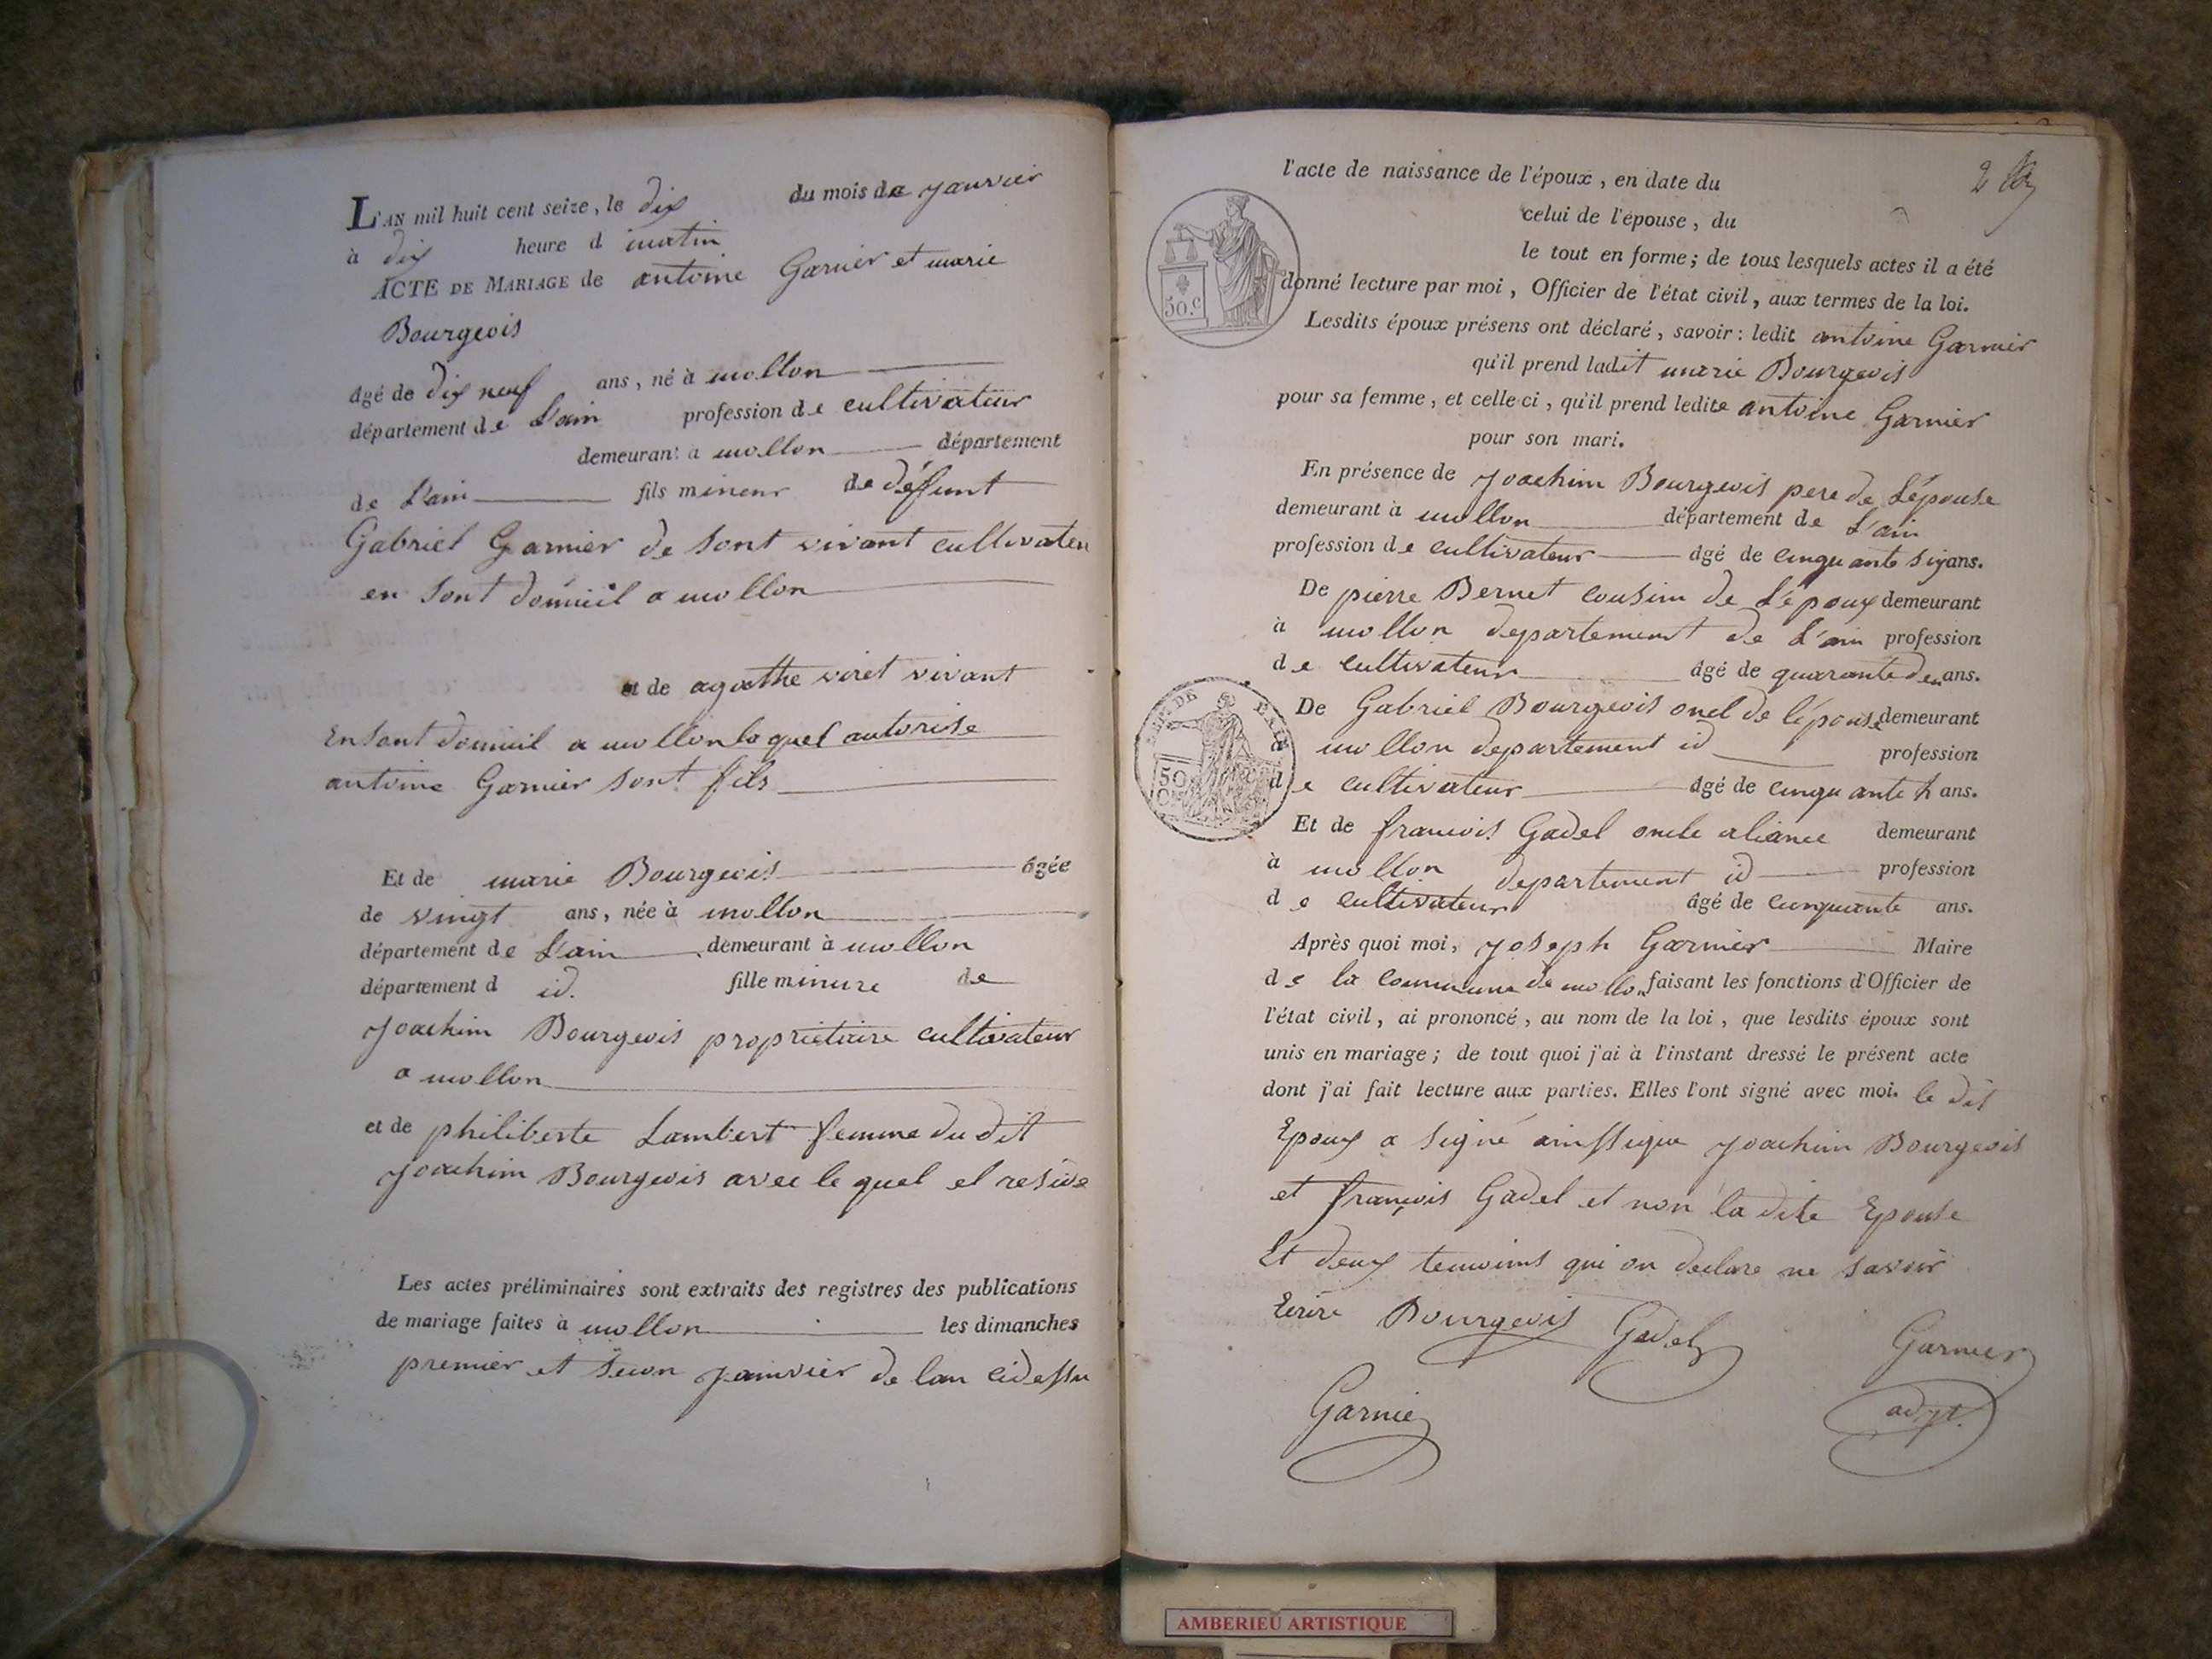 L'AN mil huit cent seize, le dix du mois de janvier
à dix heure d matin
ACTE DE MARIAGE de antoine Garnier et marie
Bourgeois
âgé de dix neuf ans, né à mollon
département de L'ain profession de cultivateur
demeurant a mollon département
de L'ain fils mineur de défunt
Gabriel Garnier de sont vivant cultivateu
en sont domicil a mollon
et de agathe viret vivant
En sont domicil a mollon loquel autorise
antoine Garnier sont fils
Et de marie Bourgeois âgée
de vingt ans, née à mollon
département de L'ain demeurant à mollon
département d id. fille minure de
joachim Bourgeois proprietaire cultivateur
a mollon
et de philiberte Lambert femme du dit
joachim Bourgeois avec le quel el reside
Les actes préliminaires sont extraits des registres des publications
de mariage faites à mollon les dimanches
premier et secon janvier de lan cidessu
l'acte de naissance de l'époux, en date du
celui de l'épouse, du
le tout en forme; de tous lesquels actes il a été
donné lecture par moi, Officier de l'état civil, aux termes de la loi.
50.c
Lesdits époux présens ont déclaré, savoir: ledit antoine Garnier
qu'il prend ladit marie Bourgeois
pour sa femme, et celle-ci, qu'il prend ledite antoine Garnier
pour son mari.
En présence de joachim Bourgeois pere de L'épouse
demeurant à mollon département de L'ain
profession de cultivateur âgé de cinquante six ans.
De pierre Bernet cousin de L'époux demeurant
à mollon departement de L'ain profession
de cultivateur âgé de quarante deu ans.
De Gabriel Bourgeois onel de lépouse demeurant
à mollon departement id profession
50
de cultivateur âgé de cinquante h ans.
Et de francois Gadel oncle aliance demeurant
à mollon departement id profession
de cultivateur âgé de cunquante ans.
Après quoi moi, joseph Garnier Maire
de la commune de mollon faisant les fonctions d'Officier de
l'état civil, ai prononcé, au nom de la loi, que lesdits époux sont
unis en mariage; de tout quoi j'ai à l'instant dressé le présent acte
dont j'ai fait lecture aux parties. Elles l'ont signé avec moi. le dit
Epoux a signé ainssique joachim Bourgeois
et françois Gadel et non la dite Epouse
Et deux temoins qui on declare ne savoir
Ecrire Bourgeois Gadel Garnier
Garnie adjt.
AMBERIEU ARTISTIQUE